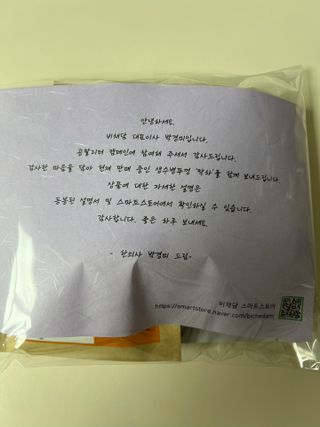 안녕하세요.
비채담 대표이사 박경미입니다.
공팔리터 캠페인에 참여해 주셔서 감사드립니다.
감사한 마음을 담아 현재 판매 중인 생수병뚜껑 '딱차'를 함께 보내드립니다.
상품에 대한 자세한 설명은
동봉된 설명서 및 스마트스토어에서 확인하실 수 있습니다.
감사합니다. 좋은 하루 보내세요.
- 한의사 박경미 드림-
비채담 스마트스토어
https://smartstore.naver.com/bichedam